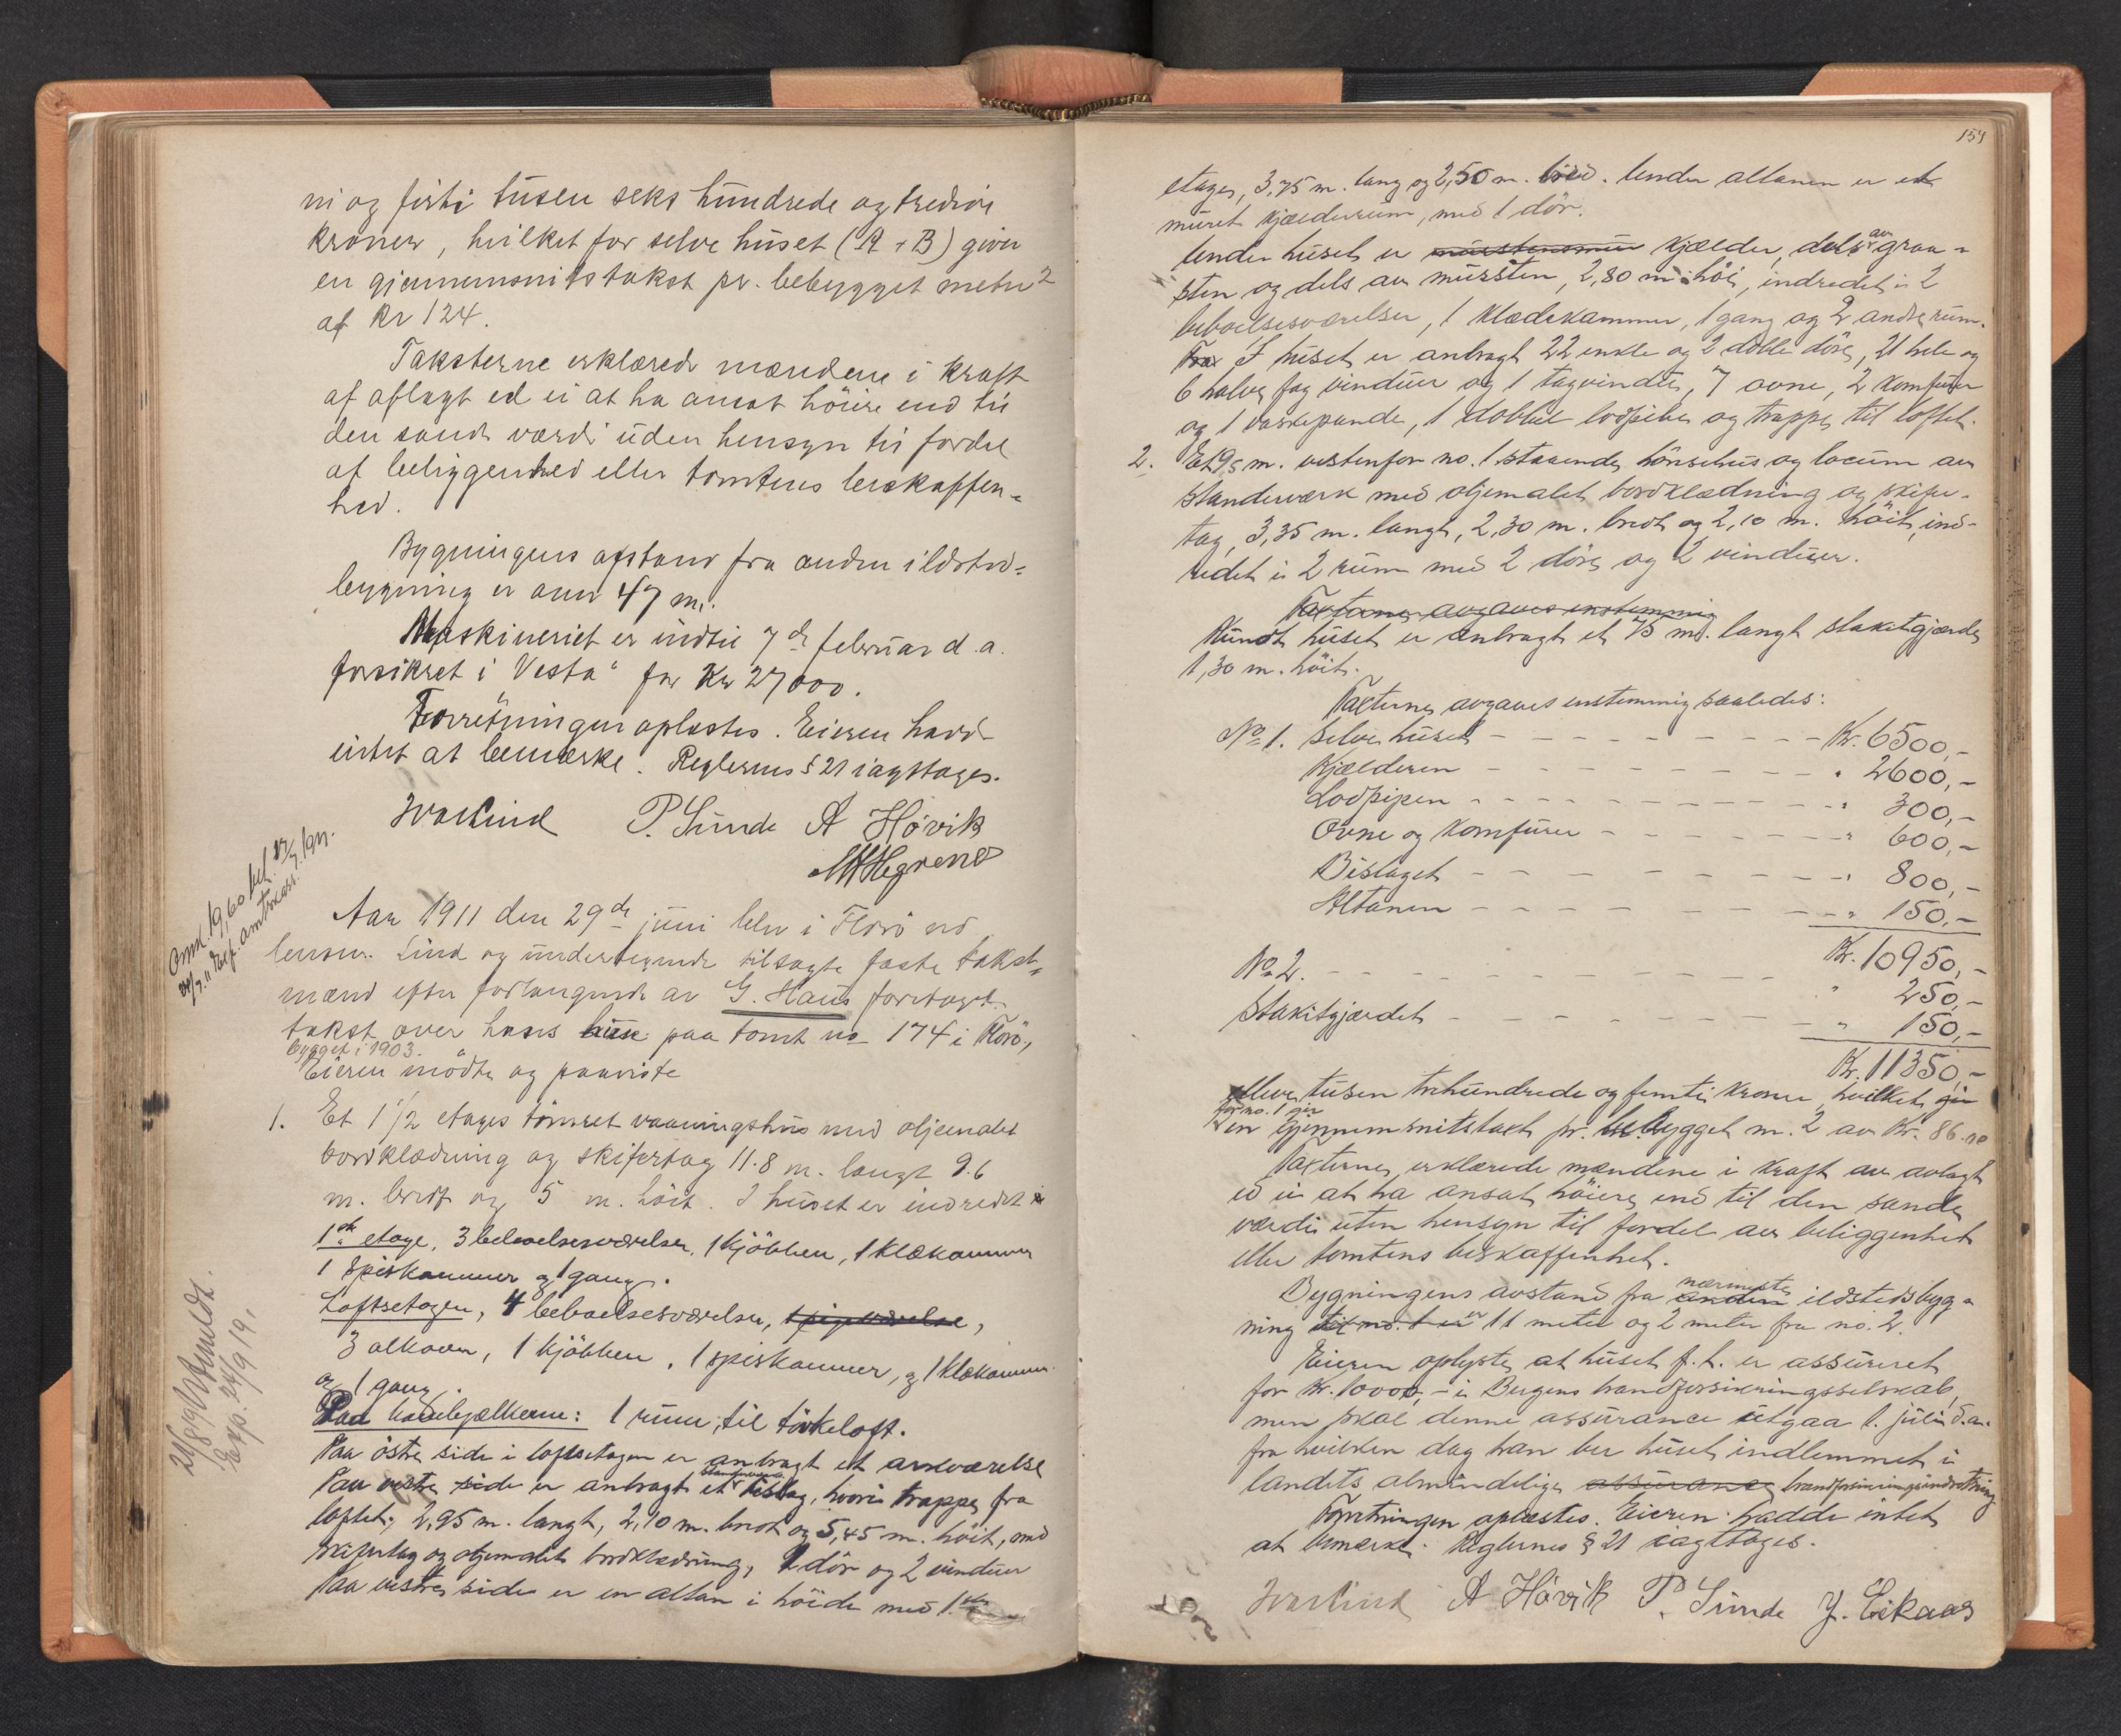 ni og firti tusen seks hundrede og tredive
kroner, hvilket for selve huset (A + B) giver
en gjennemsnitstakst pr. bebygget meter 2
af Kr 124.
Taksterne erklærede mændene i kraft
af aflagt ed ei at ha ansat höiere end til
den sande værdi uden hensyn til fordel
af beliggenhed eller tomtens beskaffen-
hed.
Bygningens afstand fra anden ildsted-
bygning er over 47 m.
Maskineriet er indtil 7de februar d.a.
forsikret i "Vesta" for Kr 27000.
Forretningen oplæstes. Eieren havde
intet at bemærke. Reglernes § 21 iagttages.
Ivar Lind P. Sunde A Høvik
Aar 1911 den 29de juni blev i Florö ved
lensm. Lind og undertegnede tilsagte faste takst-
mænd efter forlangende av G. Haus foretaget
takst over hans hus paa tomt no 174 i Florö,
bygget i 1903.
Eieren mödte og paaviste
1. Et 1 1/2 etages tömret vaaningshus med oljemalet
bordklædning og skifertag 11.8 m. langt 9.6
m. bredt og 5 m. höit. I huset er indredet i
1ste etage, 3 beboelsesværelser, 1 kjökken, 1 klækammer
1 spiskammer og 1 gang.
Loftsetagen, 4 beboelsesværelser, 1 pigeværelse,
3 alkover, 1 kjökken, 1 spiskammer, og 1 klækammer
og 1 gang.
Paa hanebjælkerne: 1 rum til törkeloft.
Paa östre side i loftsetagen er anbragt et arkværelse
Paa vestre side er anbragt et bislag, hvori trappe fra
loftet, 2,95 m. langt, 2,10 m. bredt og 5,45 m. höit, med
skifertag og oljemalet bordklædning, 1 dör og 2 vinduer
Paa vestre side er en altan i höide med 1ste
Exp. 24/9 19.
154
etage, 3,75 m. lang og 2,50 m. bred. Under altanen er et
muret kjælderrum, med 1 dör.
Under huset er murstensmur kjælder, dels av graa-
sten og dels av mursten, 2,80 m. höi, indredet i 2
beboelsesværelser, 1 klædekammer, 1 gang og 2 andre rum.
I huset er anbragt 22 enkle og 2 doble döre, 21 hele og
6 halve fag vinduer og 1 tagvindue, 7 ovne, 2 komfurer
og 1 vaskepande, 1 dobbel lodpibe og trappe til loftet.
2. Et 95 m. vestenfor no. 1 staaende hönsehus og locum av
standerværk med oljemalet bordklædning og skifer-
tag, 3,35 m. langt, 2,30 m. bredt og 2,10 m. höit, ind-
redet i 2 rum med 2 döre og 2 vinduer.
Taxterne avgaves enstemmig
Rundt huset er anbragt et 75 m. langt stakitgjærde
1,30 m. höit.
Taxterne avgaves enstemmig saaledes:
No 1. Selve huset - - - Kr. 6500,-
Kjælderen - - - " 2600,-
Lodpipen - - - " 300,-
Ovne og Komfurer - - - " 600,-
Bislaget - - - " 800,-
Altanen - - - " 150,-
Kr. 10950,-
No 2. - - - " 250,-
Stakitgjærdet - - - " 150,-
Kr. 11350,-
elleve tusen trehundrede og femti kroner, hvilket gir
for no. 1 gir
en gjennemsnitstaxt pr. bebygget m. 2 av Kr. 86.10
Taxterne erklærede mændene i kraft av avlagt
ed ei at ha ansat höiere end til den sande
værdi uten hensyn til fordel av beliggenhet
eller tomtens beskaffenhet.
nærmeste
Bygningens avstand fra anden ildstedsbyg-
ning til no. 1 er er 11 meter og 2 meter fra no. 2.
Eieren oplyste at huset f.t. er assureret
for Kr. 10000,- i Bergens brandforsikringsselskab,
men skal denne assurance utgaa 1. juli d.a.
fra hvilken dag han ber huset indlemmet i
landets almindelige assurance brandforsikringsindretning
Forretningen oplæstes. Eieren hadde intet
at bemærke. Reglernes § 21 iagttages.
Ivar Lind A Høvik P. Sunde J. Eikaas